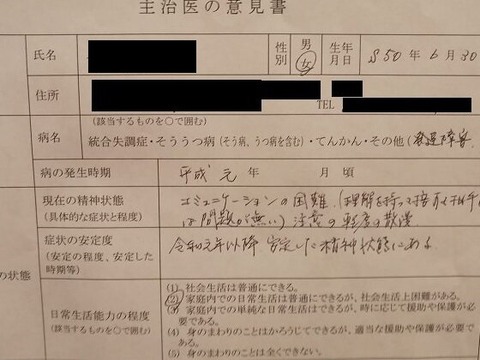 主治医の意見書
氏名
性別
男
女
生年月日
S50年6月30
住所
TEL
(該当するものを○で囲む)
病名
統合失調症・そううつ病(そう病、うつ病を含む)・てんかん・その他(発達障害
病の発生時期
平成 元 年 月頃
現在の精神状態
(具体的な症状と程度)
コミュニケーションの困難(理解を持って接す
は問題が無い)注意の軽度の散漫
の状態
症状の安定度
(安定の程度、安定した時期等)
令和元年以降 安定した精神状態にある
日常生活能力の程度
(該当するものを○で囲む)
(1) 社会生活は普通にできる。
(2) 家庭内での日常生活は普通にできるが、社会生活上困難がある。
(3) 家庭内での単純な日常生活はできるが、時に応じて援助や保護が必要である。
(4) 身のまわりのことはかろうじてできるが、適当な援助や保護が必要である。
(5) 身のまわりのことは全くできない。